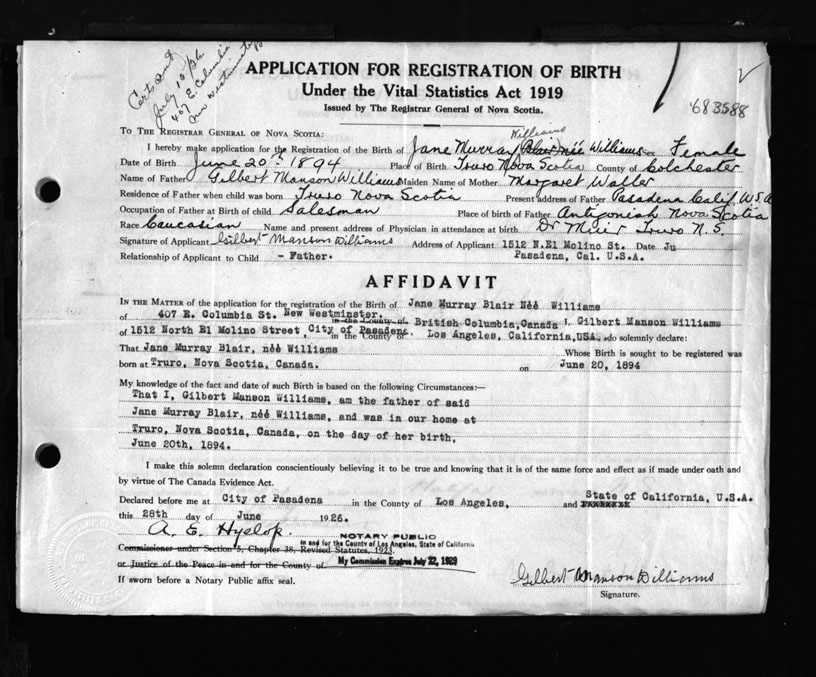 Cert sent
July 10/26
407 E. Columbia
New Westminster
APPLICATION FOR REGISTRATION OF BIRTH
Under the Vital Statistics Act 1919
Issued by The Registrar General of Nova Scotia.
683588
TO THE REGISTRAR GENERAL OF NOVA SCOTIA:
Williams
I hereby make application for the Registration of the Birth of Jane Murray Blair neé Williams Sex Female
Date of Birth June 20th 1894 Place of Birth Truro Nova Scotia County of Colchester
Name of Father Gilbert Manson Williams Maiden Name of Mother Margaret Waller
Residence of Father when child was born Truro Nova Scotia Present address of Father Pasadena Calif U.S.A
Occupation of Father at Birth of child Salesman Place of birth of Father Antigonish Nova Scotia
Race Caucasian Name and present address of Physician in attendance at birth Dr Muir Truro N.S.
Signature of Applicant Gilbert Manson Williams Address of Applicant 1512 N.El Molino St. Date Ju
Relationship of Applicant to Child - Father. Pasadena, Cal. U.S.A.
AFFIDAVIT
IN THE MATTER of the application for the registration of the Birth of Jane Murray Blair Néé Williams
of 407 E. Columbia St. New Westminster, in the County of British Columbia, Canada I, Gilbert Manson Williams
of 1512 North El Molino Street, City of Pasadena. in the County of Los Angeles, California, USA. do solemnly declare:
That Jane Murray Blair, néé Williams Whose Birth is sought to be registered was
born at Truro, Nova Scotia, Canada. on June 20, 1894
My knowledge of the fact and date of such Birth is based on the following Circumstances:—
That I, Gilbert Manson Williams, am the father of said
Jane Murray Blair, néé Williams, and was in our home at
Truro, Nova Scotia, Canada, on the day of her birth,
June 20th, 1894.
I make this solemn declaration conscientiously believing it to be true and knowing that it is of the same force and effect as if made under oath and
by virtue of The Canada Evidence Act.
Declared before me at City of Pasadena in the County of Los Angeles, and State of California, U.S.A.
this 28th day of June 1926.
A. E. Hyslop
NOTARY PUBLIC
in and for the County of Los Angeles, State of California
Commissioner under Section 5, Chapter 38, Revised Statutes, 1923.
or Justice of the Peace in and for the County of My Commission Expires July 22, 1929
If sworn before a Notary Public affix seal.
Gilbert Manson Williams
Signature.